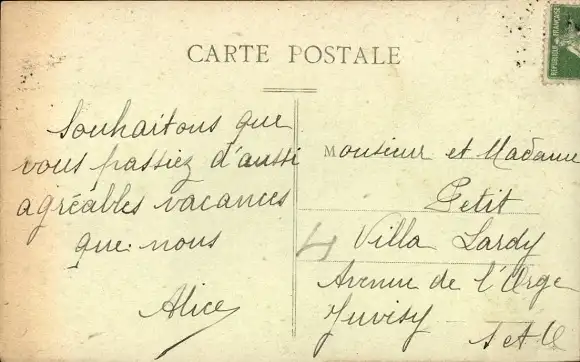 CARTE POSTALE
RÉPUBLIQUE FRANÇAISE
Souhaitons que
vous passiez d'aussi
agréables vacances
que nous
Alice
Monsieur et Madame
Petit
4 Villa Lardy
Avenue de l'Orge
Juvisy
S et O